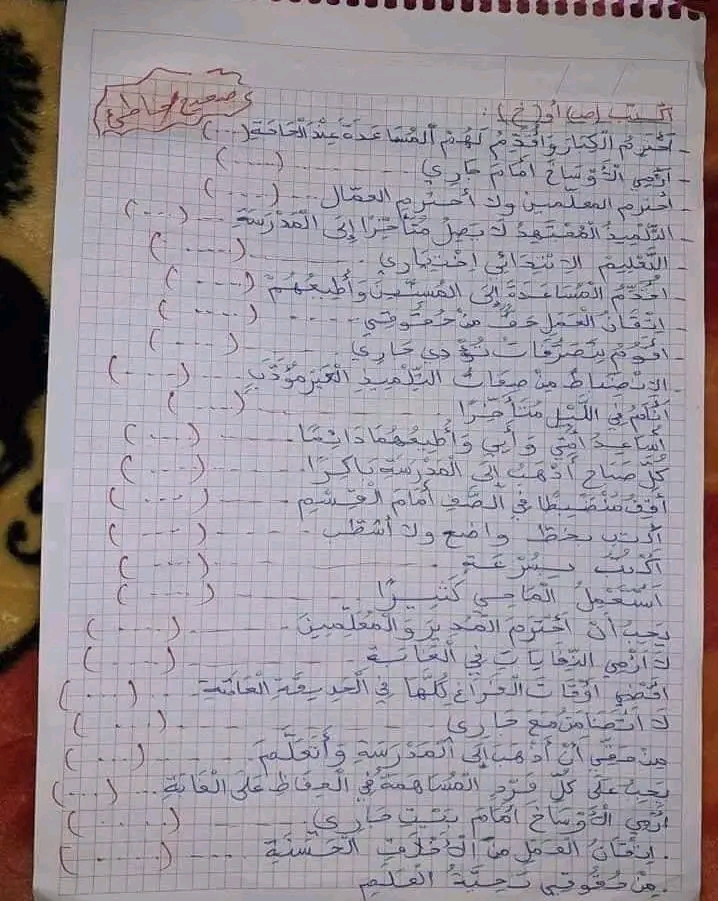 صحيح / خاطئ
أكتب (ص) أو (خ) :
- أَحْتَرِمُ الْكِبَارَ وَأُقَدِّمُ لَهُمْ الْمُسَاعَدَةَ عِنْدَ الْحَاجَةِ (...)
- أَرْمِي الْأَوْسَاخَ أَمَامَ جَارِي (....)
- أحترم المعلّمين ولا أحترم العمّال (....)
- التِّلْمِيذُ الْمُجْتَهِدُ لَا يَصِلُ مُتَأَخِّرًا إِلَى الْمَدْرَسَةِ (...)
- التَّعْلِيمُ الِابْتِدَائِي اِخْتِيَارِي (....)
- أُقَدِّمُ الْمُسَاعَدَةَ إِلَى الْمُسِنِّينَ وَأُطِيعُهُمْ (....)
- إِتْقَانُ الْعَمَلِ حَقٌّ مِنْ حُقُوقِي (....)
- أَقُومُ بِتَصَرُّفَاتٍ تُؤْذِي جَارِي (....)
- الِانْضِبَاطُ مِنْ صِفَاتِ التِّلْمِيذِ الْغَيْرِ مُؤَدَّبِ (....)
أَنَامُ فِي اللَّيْلِ مُتَأَخِّرًا (....)
أُسَاعِدُ أُمِّي وَأَبِي وَأُطِيعُهُمَا دَائِمًا (....)
كُلَّ صَبَاحٍ أَذْهَبُ إِلَى الْمَدْرَسَةِ بَاكِرًا (....)
أَقِفُ مُنْضَبِطًا فِي الصَّفِّ أَمَامَ الْقِسْمِ (....)
أكتب بخطّ واضح ولا أشطّب (....)
أَكْتُبُ بِسُرْعَةٍ (....)
أَسْتَعْمِلُ الْمَاحِي كَثِيرًا (....)
يَجِبُ أَنْ أَحْتَرِمَ الْمُدِيرَ وَالْمُعَلِّمِينَ (....)
لَا أَرْمِي النِّفَايَاتِ فِي الْغَابَةِ (....)
أَقْضِي أَوْقَاتَ الْفَرَاغِ كُلَّهَا فِي الْحَدِيقَةِ الْعَامَّةِ (....)
لَا أَتَضَامَنُ مَعَ جَارِي (....)
مِنْ حَقِّي أَنْ أَذْهَبَ إِلَى الْمَدْرَسَةِ وَأَتَعَلَّمَ (....)
يَجِبُ عَلَى كُلِّ فَرْدٍ الْمُسَاهَمَةُ فِي الْحِفَاظِ عَلَى الْغَابَةِ (....)
أَرْمِي الْأَوْسَاخَ أَمَامَ بَيْتِ جَارِي (....)
. إِتْقَانُ الْعَمَلِ مِنَ الْأَخْلَاقِ الْحَسَنَةِ (....)
. مِنْ حُقُوقِي تَحِيَّةُ الْعَلَمِ